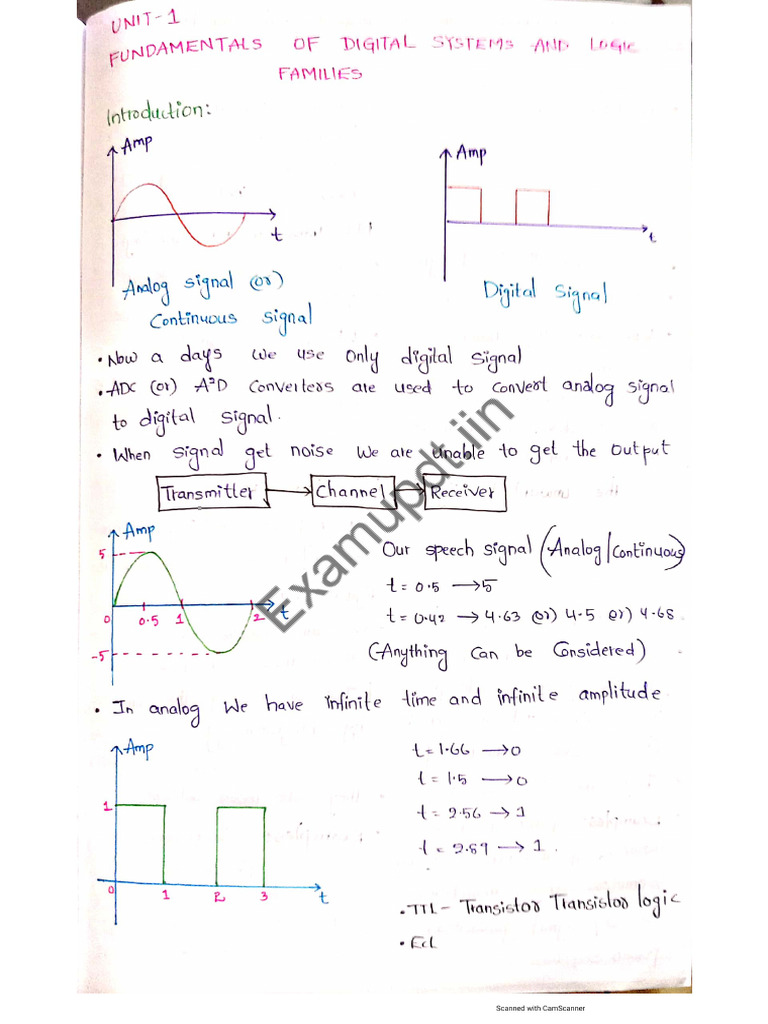 UNIT-1
FUNDAMENTALS OF DIGITAL SYSTEMS AND LOGIC
FAMILIES
Introduction:
Amp
t
Analog signal (or)
Continuous signal
Amp
t
Digital Signal
• Now a days we use only digital signal
• ADC (or) A²D converters are used to convert analog signal
to digital signal.
• When signal get noise we are unable to get the output
Transmitter Channel Receiver
Amp
5
0 0.5 1 2 t
-5
Our speech signal (Analog/Continuous)
t = 0.5 → 5
t = 0.42 → 4.63 (or) 4.5 (or) 4.68
(Anything can be Considered)
• In analog we have infinite time and infinite amplitude
Amp
1
0 1 2 3 t
t = 1.66 → 0
t = 1.5 → 0
t = 2.56 → 1
t = 2.89 → 1
• TTL - Transistor Transistor logic
• Ecl
Examupdt.iin
Scanned with CamScanner